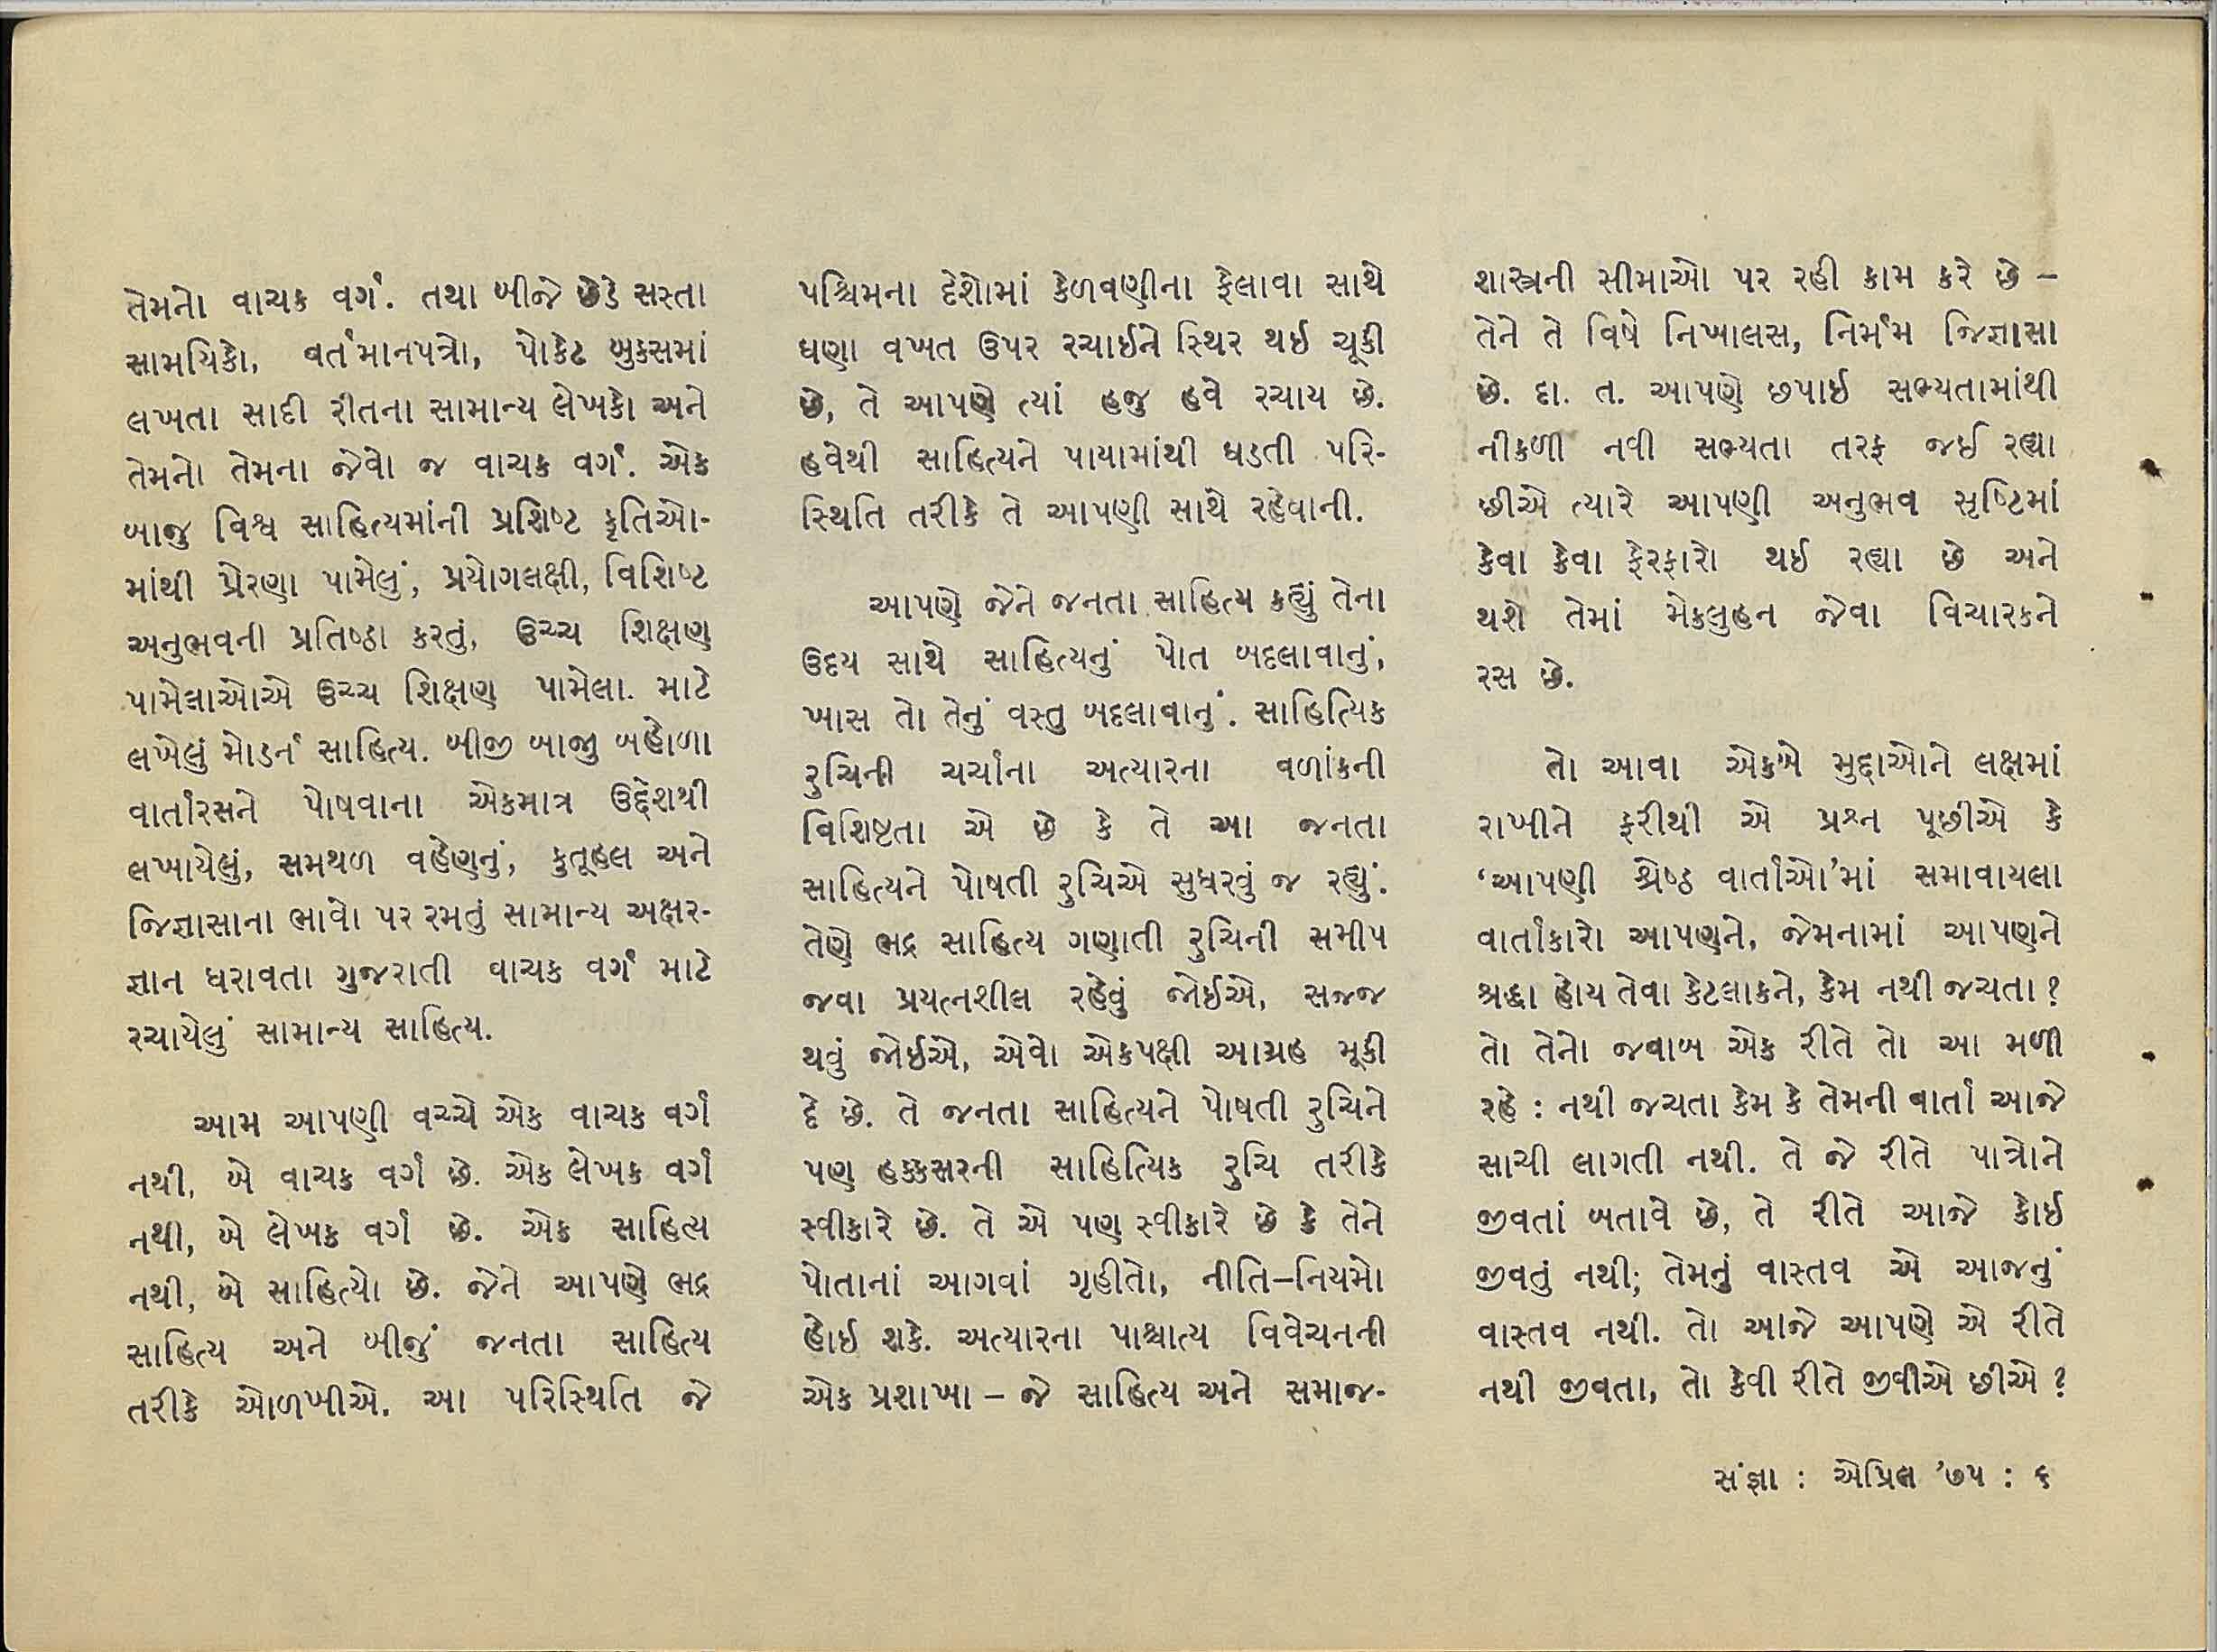 તેમનો વાચક વર્ગ. તથા બીજે છેડે સસ્તા
સામયિકો, વર્તમાનપત્રો, પોકેટ બુક્સમાં
લખતા સાદી રીતના સામાન્ય લેખકો અને
તેમનો તેમના જેવો જ વાચક વર્ગ. એક
બાજુ વિશ્વ સાહિત્યમાંની પ્રશિષ્ટ કૃતિઓ-
માંથી પ્રેરણા પામેલું, પ્રયોગલક્ષી, વિશિષ્ટ
અનુભવની પ્રતિષ્ઠા કરતું, ઉચ્ચ શિક્ષણ
પામેલાઓએ ઉચ્ચ શિક્ષણ પામેલા. માટે
લખેલું મોડર્ન સાહિત્ય. બીજી બાજુ બહોળા
વાર્તારસને પોષવાના એકમાત્ર ઉદ્દેશથી
લખાયેલું, સમથળ વહેણનું, કુતૂહલ અને
જિજ્ઞાસાના ભાવો પર રમતું સામાન્ય અક્ષર-
જ્ઞાન ધરાવતા ગુજરાતી વાચક વર્ગ માટે
રચાયેલું સામાન્ય સાહિત્ય.
આમ આપણી વચ્ચે એક વાચક વર્ગ
નથી, બે વાચક વર્ગ છે. એક લેખક વર્ગ
નથી, બે લેખક વર્ગ છે. એક સાહિત્ય
નથી, બે સાહિત્યો છે. જેને આપણે ભદ્ર
સાહિત્ય અને બીજું જનતા સાહિત્ય
તરીકે ઓળખીએ. આ પરિસ્થિતિ જે
પશ્ચિમના દેશોમાં કેળવણીના ફેલાવા સાથે
ઘણા વખત ઉપર રચાઈને સ્થિર થઈ ચૂકી
છે, તે આપણે ત્યાં હજુ હવે રચાય છે.
હવેથી સાહિત્યને પાયામાંથી ઘડતી પરિ-
સ્થિતિ તરીકે તે આપણી સાથે રહેવાની.
આપણે જેને જનતા સાહિત્ય કહ્યું તેના
ઉદય સાથે સાહિત્યનું પોત બદલાવાનું,
ખાસ તો તેનું વસ્તુ બદલાવાનું. સાહિત્યિક
રુચિની ચર્ચાના અત્યારના વળાંકની
વિશિષ્ટતા એ છે કે તે આ જનતા
સાહિત્યને પોષતી રુચિએ સુધરવું જ રહ્યું.
તેણે ભદ્ર સાહિત્ય ગણાતી રુચિની સમીપ
જવા પ્રયત્નશીલ રહેવું જોઈએ, સજ્જ
થવું જોઈએ, એવો એકપક્ષી આગ્રહ મૂકી
દે છે. તે જનતા સાહિત્યને પોષતી રુચિને
પણ હક્કસરની સાહિત્યિક રુચિ તરીકે
સ્વીકારે છે. તે એ પણ સ્વીકારે છે કે તેને
પોતાનાં આગવાં ગૃહીતો, નીતિ–નિયમો
હોઈ શકે. અત્યારના પાશ્ચાત્ય વિવેચનની
એક પ્રશાખા – જે સાહિત્ય અને સમાજ-
શાસ્ત્રની સીમાઓ પર રહી કામ કરે છે –
તેને તે વિષે નિખાલસ, નિર્મમ જિજ્ઞાસા
છે. દા. ત. આપણે છપાઈ સભ્યતામાંથી
નીકળી નવી સભ્યતા તરફ જઈ રહ્યા
છીએ ત્યારે આપણી અનુભવ સૃષ્ટિમાં
કેવા કેવા ફેરફારો થઈ રહ્યા છે અને
થશે તેમાં મેકલુહન જેવા વિચારકને
રસ છે.
તો આવા એકબે મુદ્દાઓને લક્ષમાં
રાખીને ફરીથી એ પ્રશ્ન પૂછીએ કે
‘આપણી શ્રેષ્ઠ વાર્તાઓ’માં સમાવાયલા
વાર્તાકારો આપણને, જેમનામાં આપણને
શ્રદ્ધા હોય તેવા કેટલાકને, કેમ નથી જચતા ?
તો તેનો જવાબ એક રીતે તો આ મળી
રહે : નથી જચતા કેમ કે તેમની વાર્તા આજે
સાચી લાગતી નથી. તે જે રીતે પાત્રોને
જીવતાં બતાવે છે, તે રીતે આજે કોઈ
જીવતું નથી; તેમનું વાસ્તવ એ આજનું
વાસ્તવ નથી. તો આજે આપણે એ રીતે
નથી જીવતા, તો કેવી રીતે જીવીએ છીએ ?
સંજ્ઞા : એપ્રિલ ’૭૫ : ૬